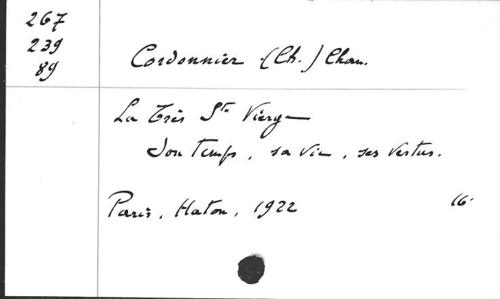 267
239
89
Cordonnier (Ch.) Chan.
La Très Ste Vierge
Son temps, sa vie, ses vertus.
Paris, Haton, 1922 16°